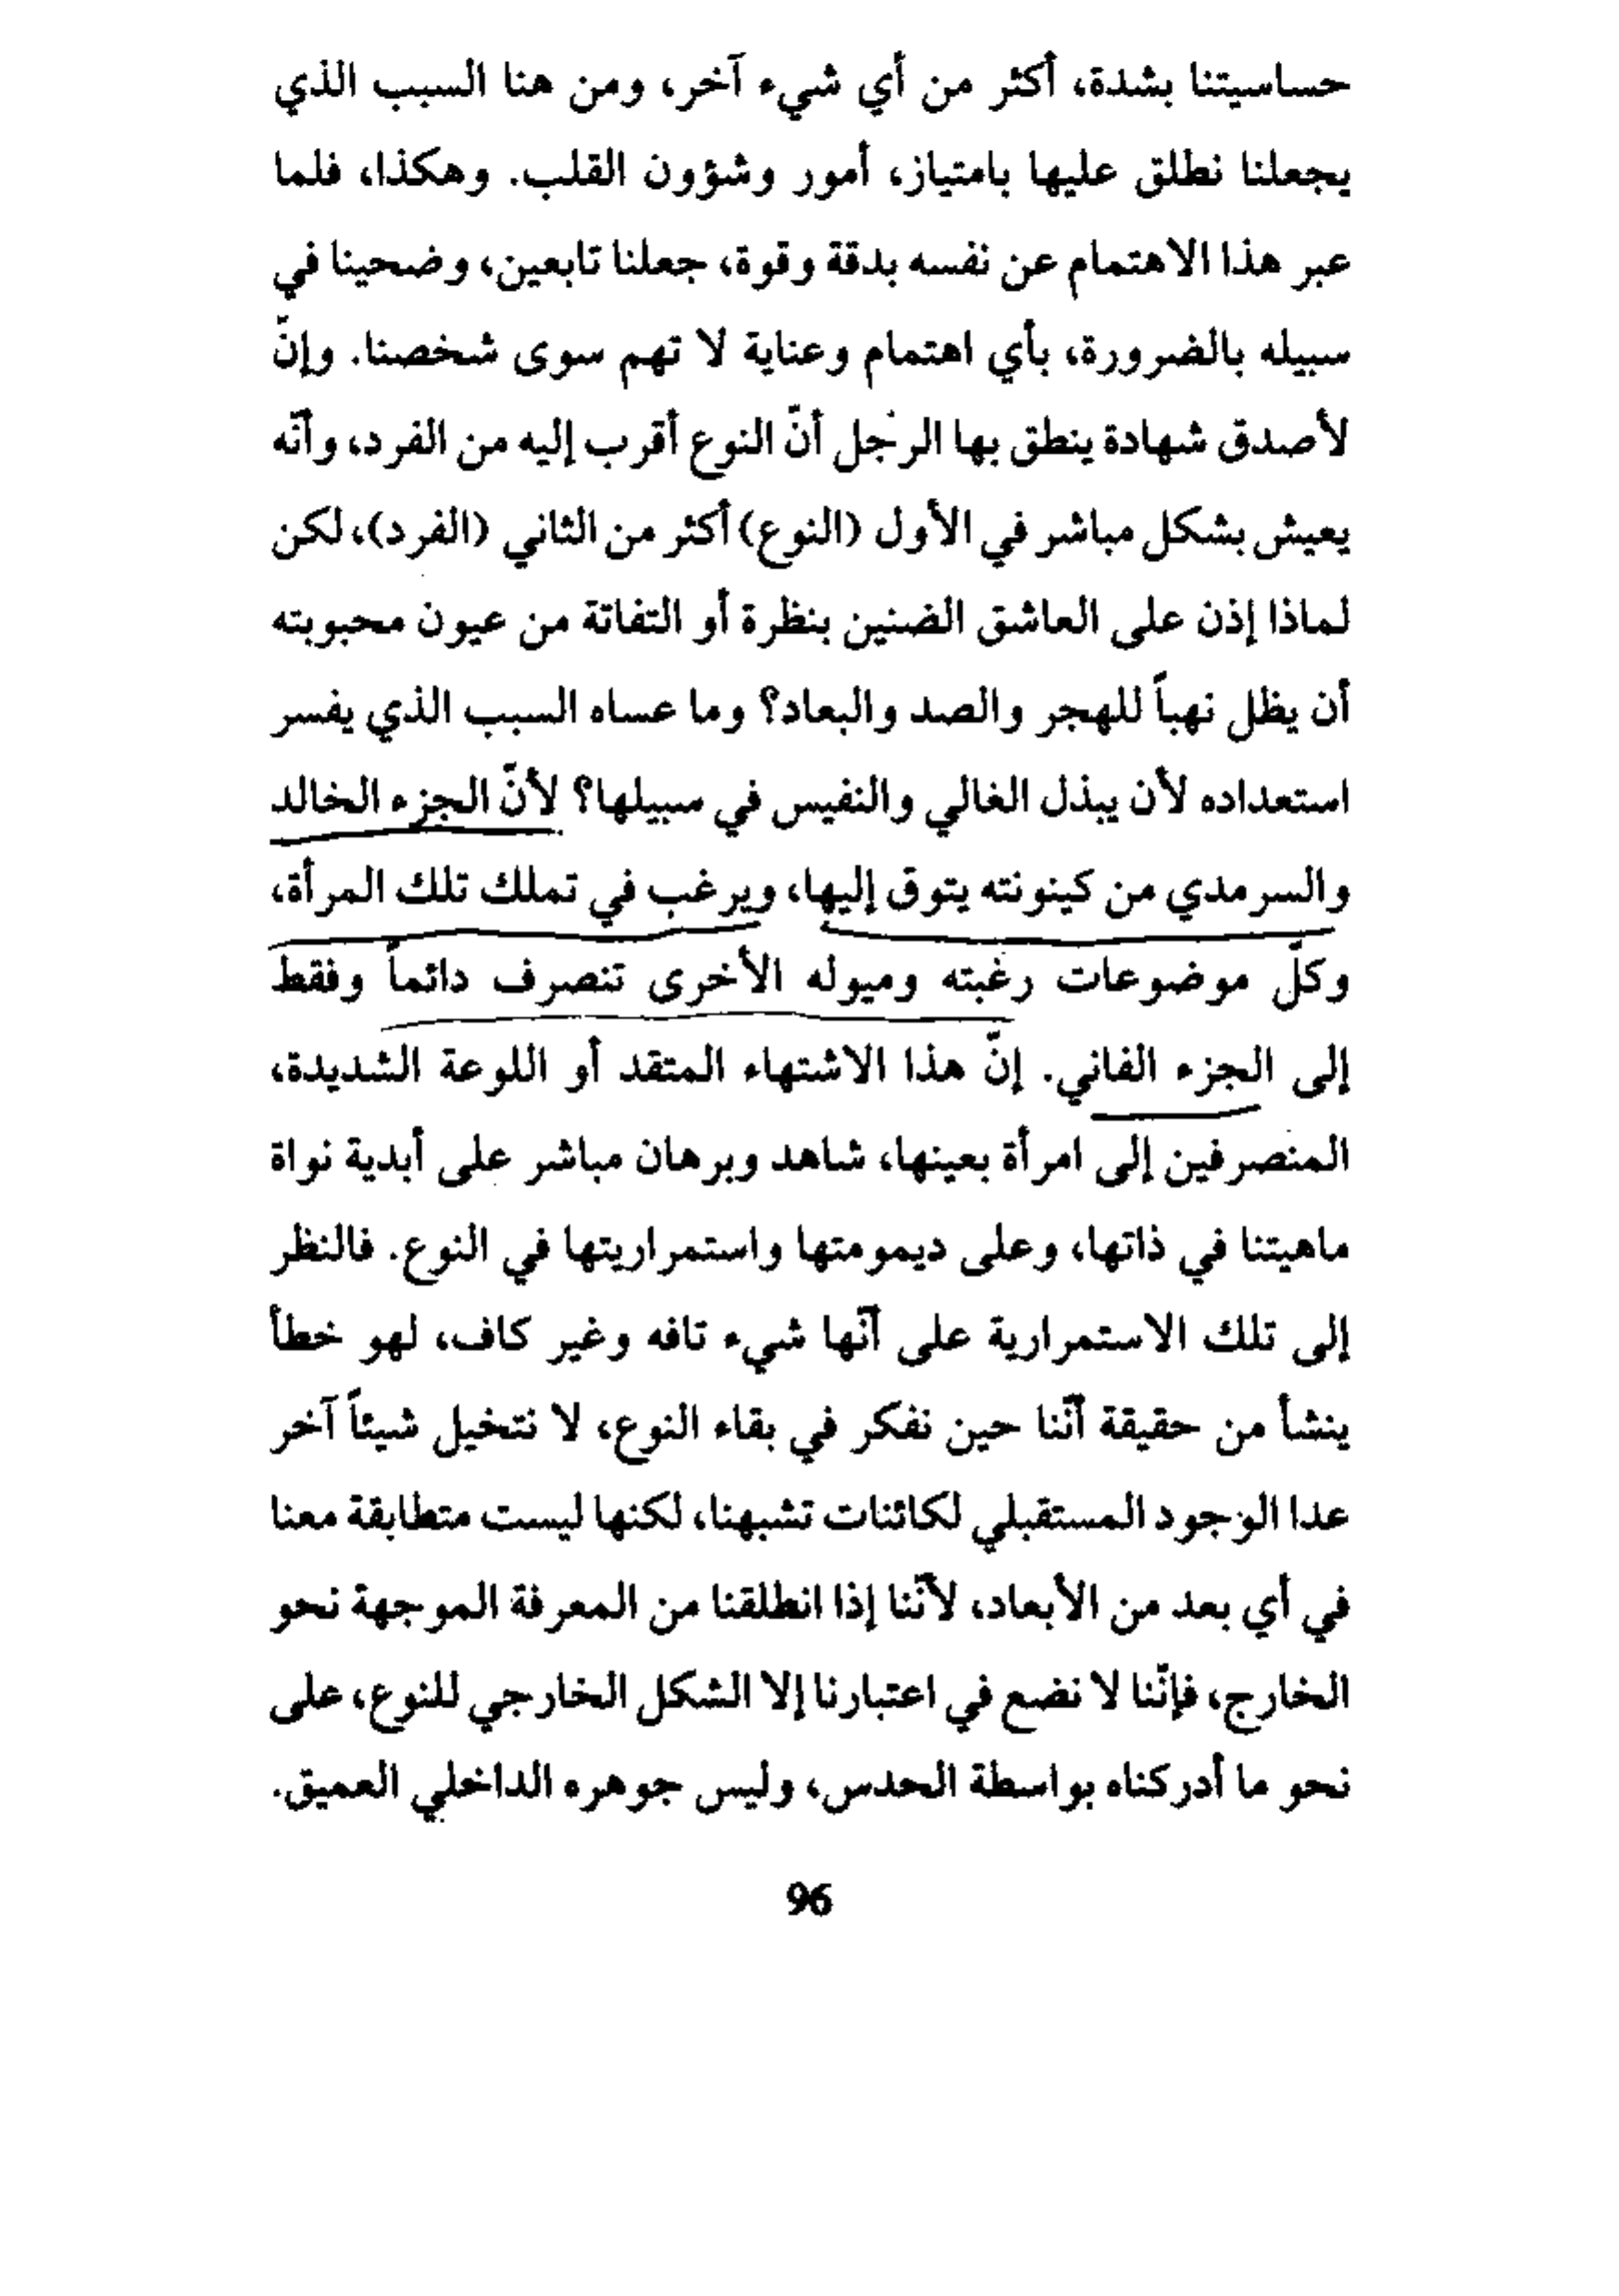 حساسيتنا بشدة، أكثر من أي شيء آخر، ومن هنا السبب الذي
يجعلنا نطلق عليها بامتياز، أمور وشؤون القلب. وهكذا، فلما
عبر هذا الاهتمام عن نفسه بدقة وقوة، جعلنا تابعين، وضحينا في
سبيله بالضرورة، بأي اهتمام وعناية لا تهم سوى شخصنا. وإنّ
لأصدق شهادة ينطق بها الرجل أنّ النوع أقرب إليه من الفرد، وأنّه
يعيش بشكل مباشر في الأول (النوع) أكثر من الثاني (الفرد)، لكن
لماذا إذن على العاشق الضنين بنظرة أو التفاتة من عيون محبوبته
أن يظل نهباً للهجر والصد والبعاد؟ وما عساه السبب الذي يفسر
استعداده لأن يبذل الغالي والنفيس في سبيلها؟ لأنّ الجزء الخالد
والسرمدي من كينونته يتوق إليها، ويرغب في تملك تلك المرأة،
وكلّ موضوعات رغبته وميوله الأخرى تنصرف دائماً وفقط
إلى الجزء الفاني. إنّ هذا الاشتهاء المتقد أو اللوعة الشديدة،
المنصرفين إلى امرأة بعينها، شاهد وبرهان مباشر على أبدية نواة
ماهيتنا في ذاتها، وعلى ديمومتها واستمراريتها في النوع. فالنظر
إلى تلك الاستمرارية على أنّها شيء تافه وغير كاف، لهو خطأ
ينشأ من حقيقة أنّنا حين نفكر في بقاء النوع، لا نتخيل شيئاً آخر
عدا الوجود المستقبلي لكائنات تشبهنا، لكنها ليست متطابقة معنا
في أي بعد من الأبعاد، لأنّنا إذا انطلقنا من المعرفة الموجهة نحو
الخارج، فإنّنا لا نضع في اعتبارنا إلا الشكل الخارجي للنوع، على
نحو ما أدركناه بواسطة الحدس، وليس جوهره الداخلي العميق.
96